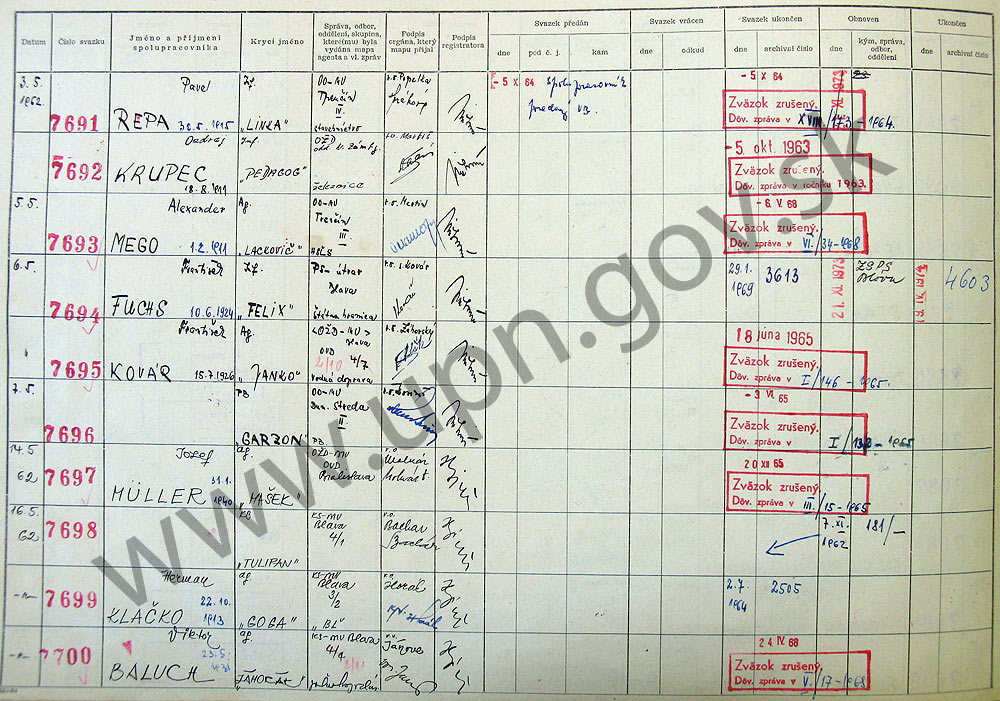 Datum
Číslo svazku
Jméno a příjmení spolupracovníka
Krycí jméno
Správa, odbor, oddělení, skupina, které(mu) byla vydána mapa agenta a vl. zpráv
Podpis orgána, který mapu přijal
Podpis registratora
Svazek předán
dne
pod č. j.
kam
Svazek vrácen
dne
odkud
Svazek ukončen
dne
archivní číslo
Obnoven
dne
kým, správa, odbor, oddělení
Ukončen
dne
archivní číslo
3.5. 1962
7691
Pavel
REPA 30.5.1915
„LINKA"
OO-AV
Trenčín
IV.
stavebníctvo
- 5 X 64
- 5 X 64
Zväzok zrušený.
Dôv. zpráva v XVIII/173-1964.
7692
Ondrej
KRUPEC 18.8.1911
„PEDAGOG"
železnice
- 5. okt. 1963
Zväzok zrušený.
Dôv. zpráva v ročníku 1963.
5.5.
7693
Alexander
MEGO 1.2.1911
Ag.
„LACKOVIČ"
OO-AV
Trenčín
III.
- 6. V. 68
Zväzok zrušený.
Dôv. zpráva v VI/34-1968
6.5.
7694
František
FUCHS 10.6.1924
„FELIX"
štátna hranica
29.1. 1969
3613
21. XI. 1973
4603
7695
František
KOVÁR 15.7.1926
Ag.
„JANKO"
4/7
vodná doprava
18 júna 1965
Zväzok zrušený.
Dôv. zpráva v I/146-1965.
7.5.
7696
PB
„GARZON"
OO-AV
Dun. Streda
II.
PB.
- 3 VI. 65
Zväzok zrušený.
Dôv. zpráva v I/132-1965
14.5 62
7697
Jozef
MÜLLER 31.1. 1940
ag.
„MAŠEK"
OŽD-MV
OVD
Bratislava
20 XII 65
Zväzok zrušený.
Dôv. zpráva v III./15-1965
16.5. 62
7698
KB
„TULIPAN"
KS-MV
Blava
4/1
7. XI. 1962
181/-
7699
Herman
KLAČKO 22.10. 1913
ag.
„GOGA"
KS-MV
Blava
3/2
„BL"
2.7. 1964
2505
7700
Viktor
BALUCH
ag.
KS-MV Blava
4/4
24 IV. 68
Zväzok zrušený.
Dôv. zpráva v V./17-1968
www.upn.gov.sk